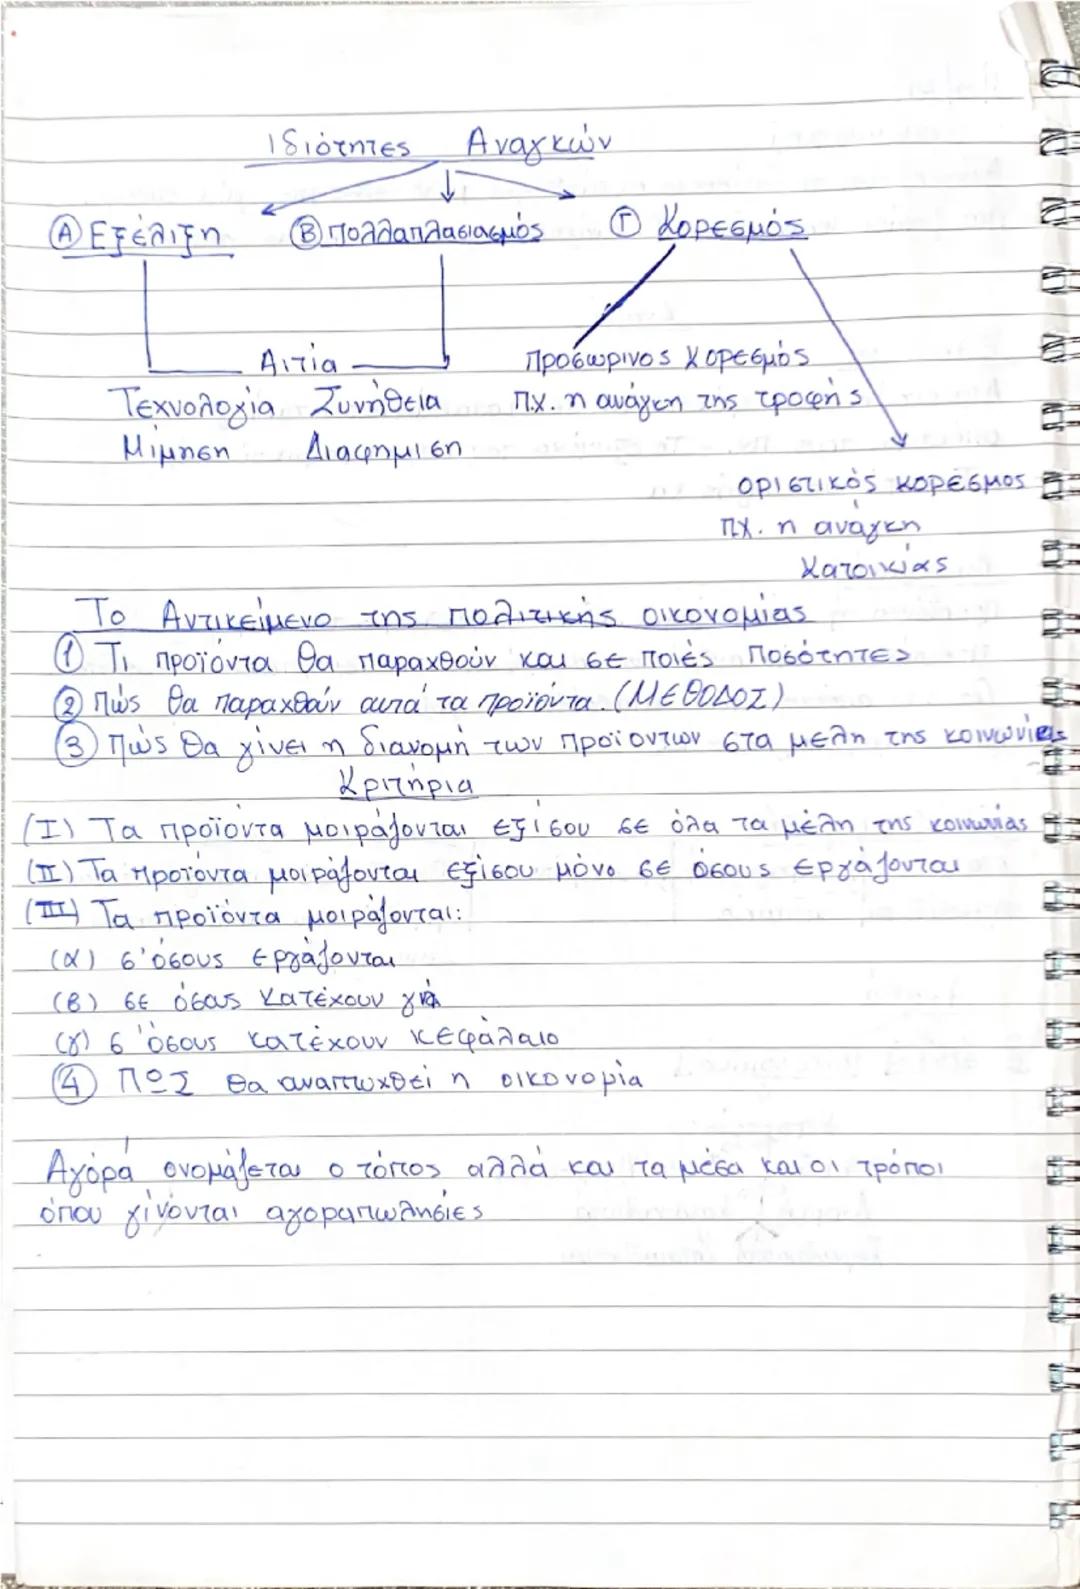 Ιδιότητες Αναγκών
Α Εξέλιξη Β Πολλαπλασιασμός Γ Κορεσμός
Αιτία Προσωρινος Κορεσμός
Τεχνολογία Συνήθεια Π.Χ. η ανάγκη της τροφής
Μίμηση Διαφημιση
οριστικός κορέσμος
ΠΧ. η ανάγκη
κατοικίας
Το Αντικείμενο της πολιτικής οικονομίας
1 Τι προϊόντα θα παραχθούν και σε ποιές Ποσότητες
2 Πώς θα παραχθούν αυτά τα προϊόντα. (ΜΕΘΟΔΟΣ)
3 Πώς θα γίνει η διανομή των προϊοντων στα μελη της κοινωνίας
Κριτήρια
(Ι) Τα προϊοντα μοιράζονται εξίσου σε όλα τα μέλη της κοινωνίας
(ΙΙ) Τα προϊόντα μοιράζονται εξίσου μόνο σε όσους εργάζονται
(ΙΙΙ) Τα προϊόντα μοιράζονται:
(α) σ'όσους εργάζονται
(β) σε όσους κατέχουν γη
(γ) σ'όσους κατέχουν κεφάλαιο
4 ΠΩΣ θα αναπτυχθεί η οικονομία
Αγόρά ονομάζεται ο τόπος αλλά και τα μέσα και οι τρόποι
όπου γίνονται αγοραπωλησίες